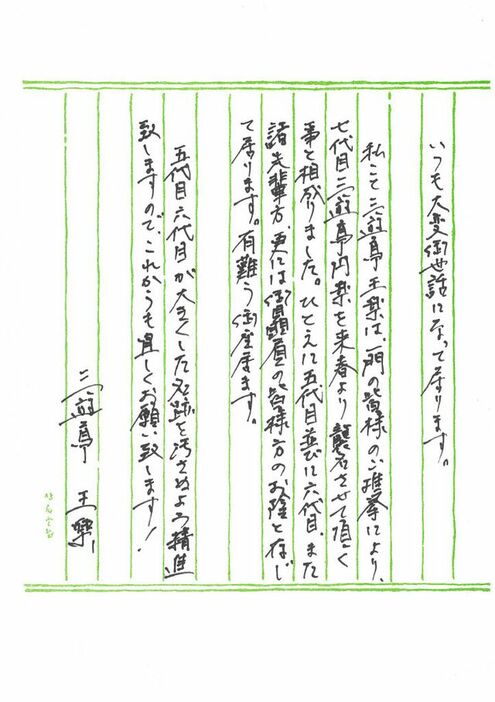 いつも大変御世話になって居ります。
私こと三遊亭王楽は、一門の皆様のご推挙により、
七代目三遊亭円楽を来春より襲名させて頂く
事と相成りました。ひとえに五代目並びに六代目、また
諸先輩方、更には御贔屓の皆様方のお陰と存じ
て居ります。有難う御座居ます。
五代目六代目が大きくした名跡を汚さぬよう精進
致しますので、これからも宜しくお願い致します!
三遊亭 王樂